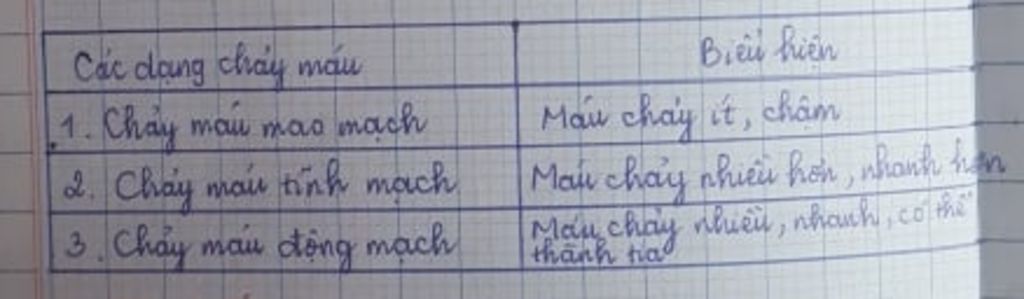 Các dạng chảy máu
Biểu hiện
1. Chảy máu mao mạch
Máu chảy ít, chậm
2. Chảy máu tĩnh mạch
Máu chảy nhiều hơn, nhanh hơn
3. Chảy máu động mạch
Máu chảy nhiều, nhanh, có thể
thành tia